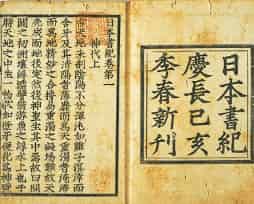 日本書紀
慶長己亥
季春新刊
日本書紀卷第一
神代上
古天地未剖陰陽不分渾沌如雞子溟涬而
含牙及其清陽者薄靡而爲天重濁者淹滯而
爲地精妙之合搏易重濁之凝竭難故天
先成而地後定然後神聖生其中焉故曰開
闢之初洲壤浮漂譬猶游魚之浮水上也于
時天地之中生一物狀如葦牙便化爲神號